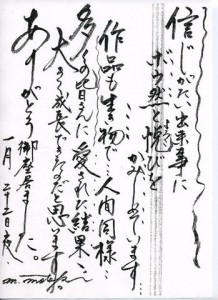 信じがたい出来事に
ぼう然と悔しさを
かみしめています…
……
作品も生き物で…人間同様…
多くの皆さんに愛された結果…
大きく成長できたのだと思います
……
ありがとう御座居ました。
一月 二十二日夜